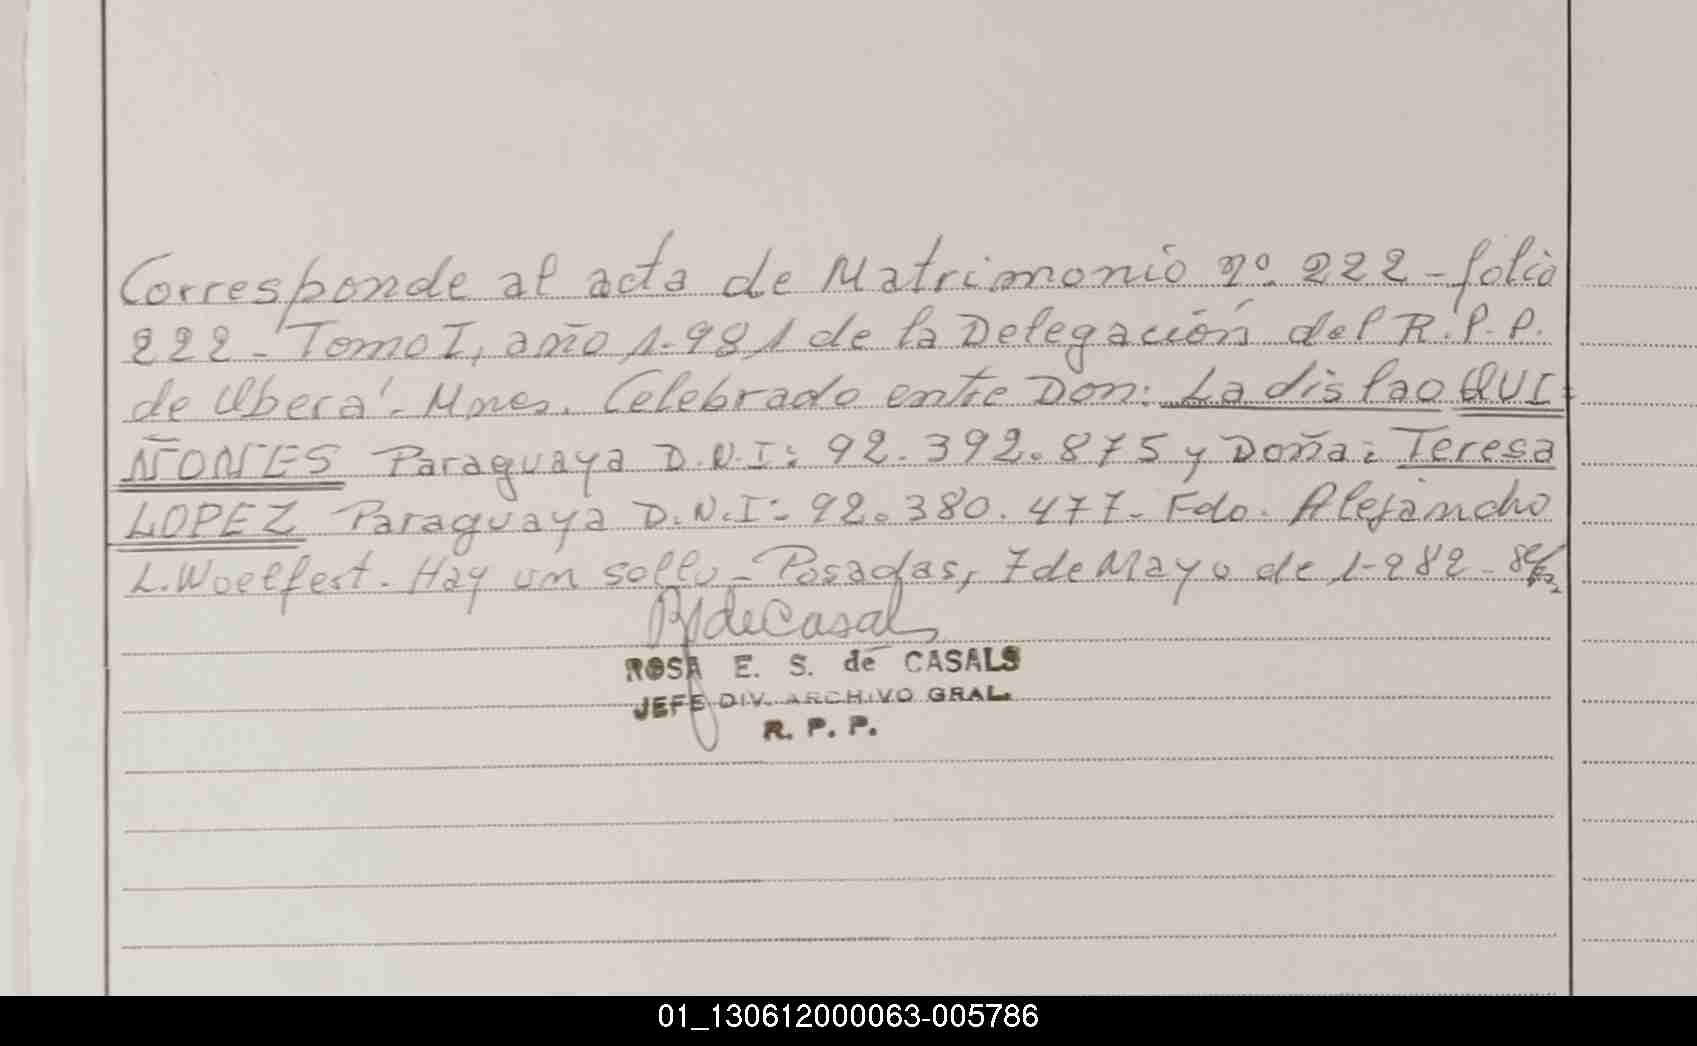 Corresponde al acta de Matrimonio nº. 222 - folio
222 - Tomo I, año 1.981 de la Delegación del R.P.P.
de Oberá - Mnes. Celebrado entre Don: Ladislao QUI-
ÑONES Paraguaya D.N.I: 92.392.875 y Doña: Teresa
LOPEZ Paraguaya D.N.I: 92.380.477. Fdo. Alejandro
L. Woelfert. Hay un sello - Posadas, 7 de Mayo de 1.982 -
RdeCasals
ROSA E. S. de CASALS
JEFE DIV. ARCHIVO GRAL.
R. P. P.
01_130612000063-005786